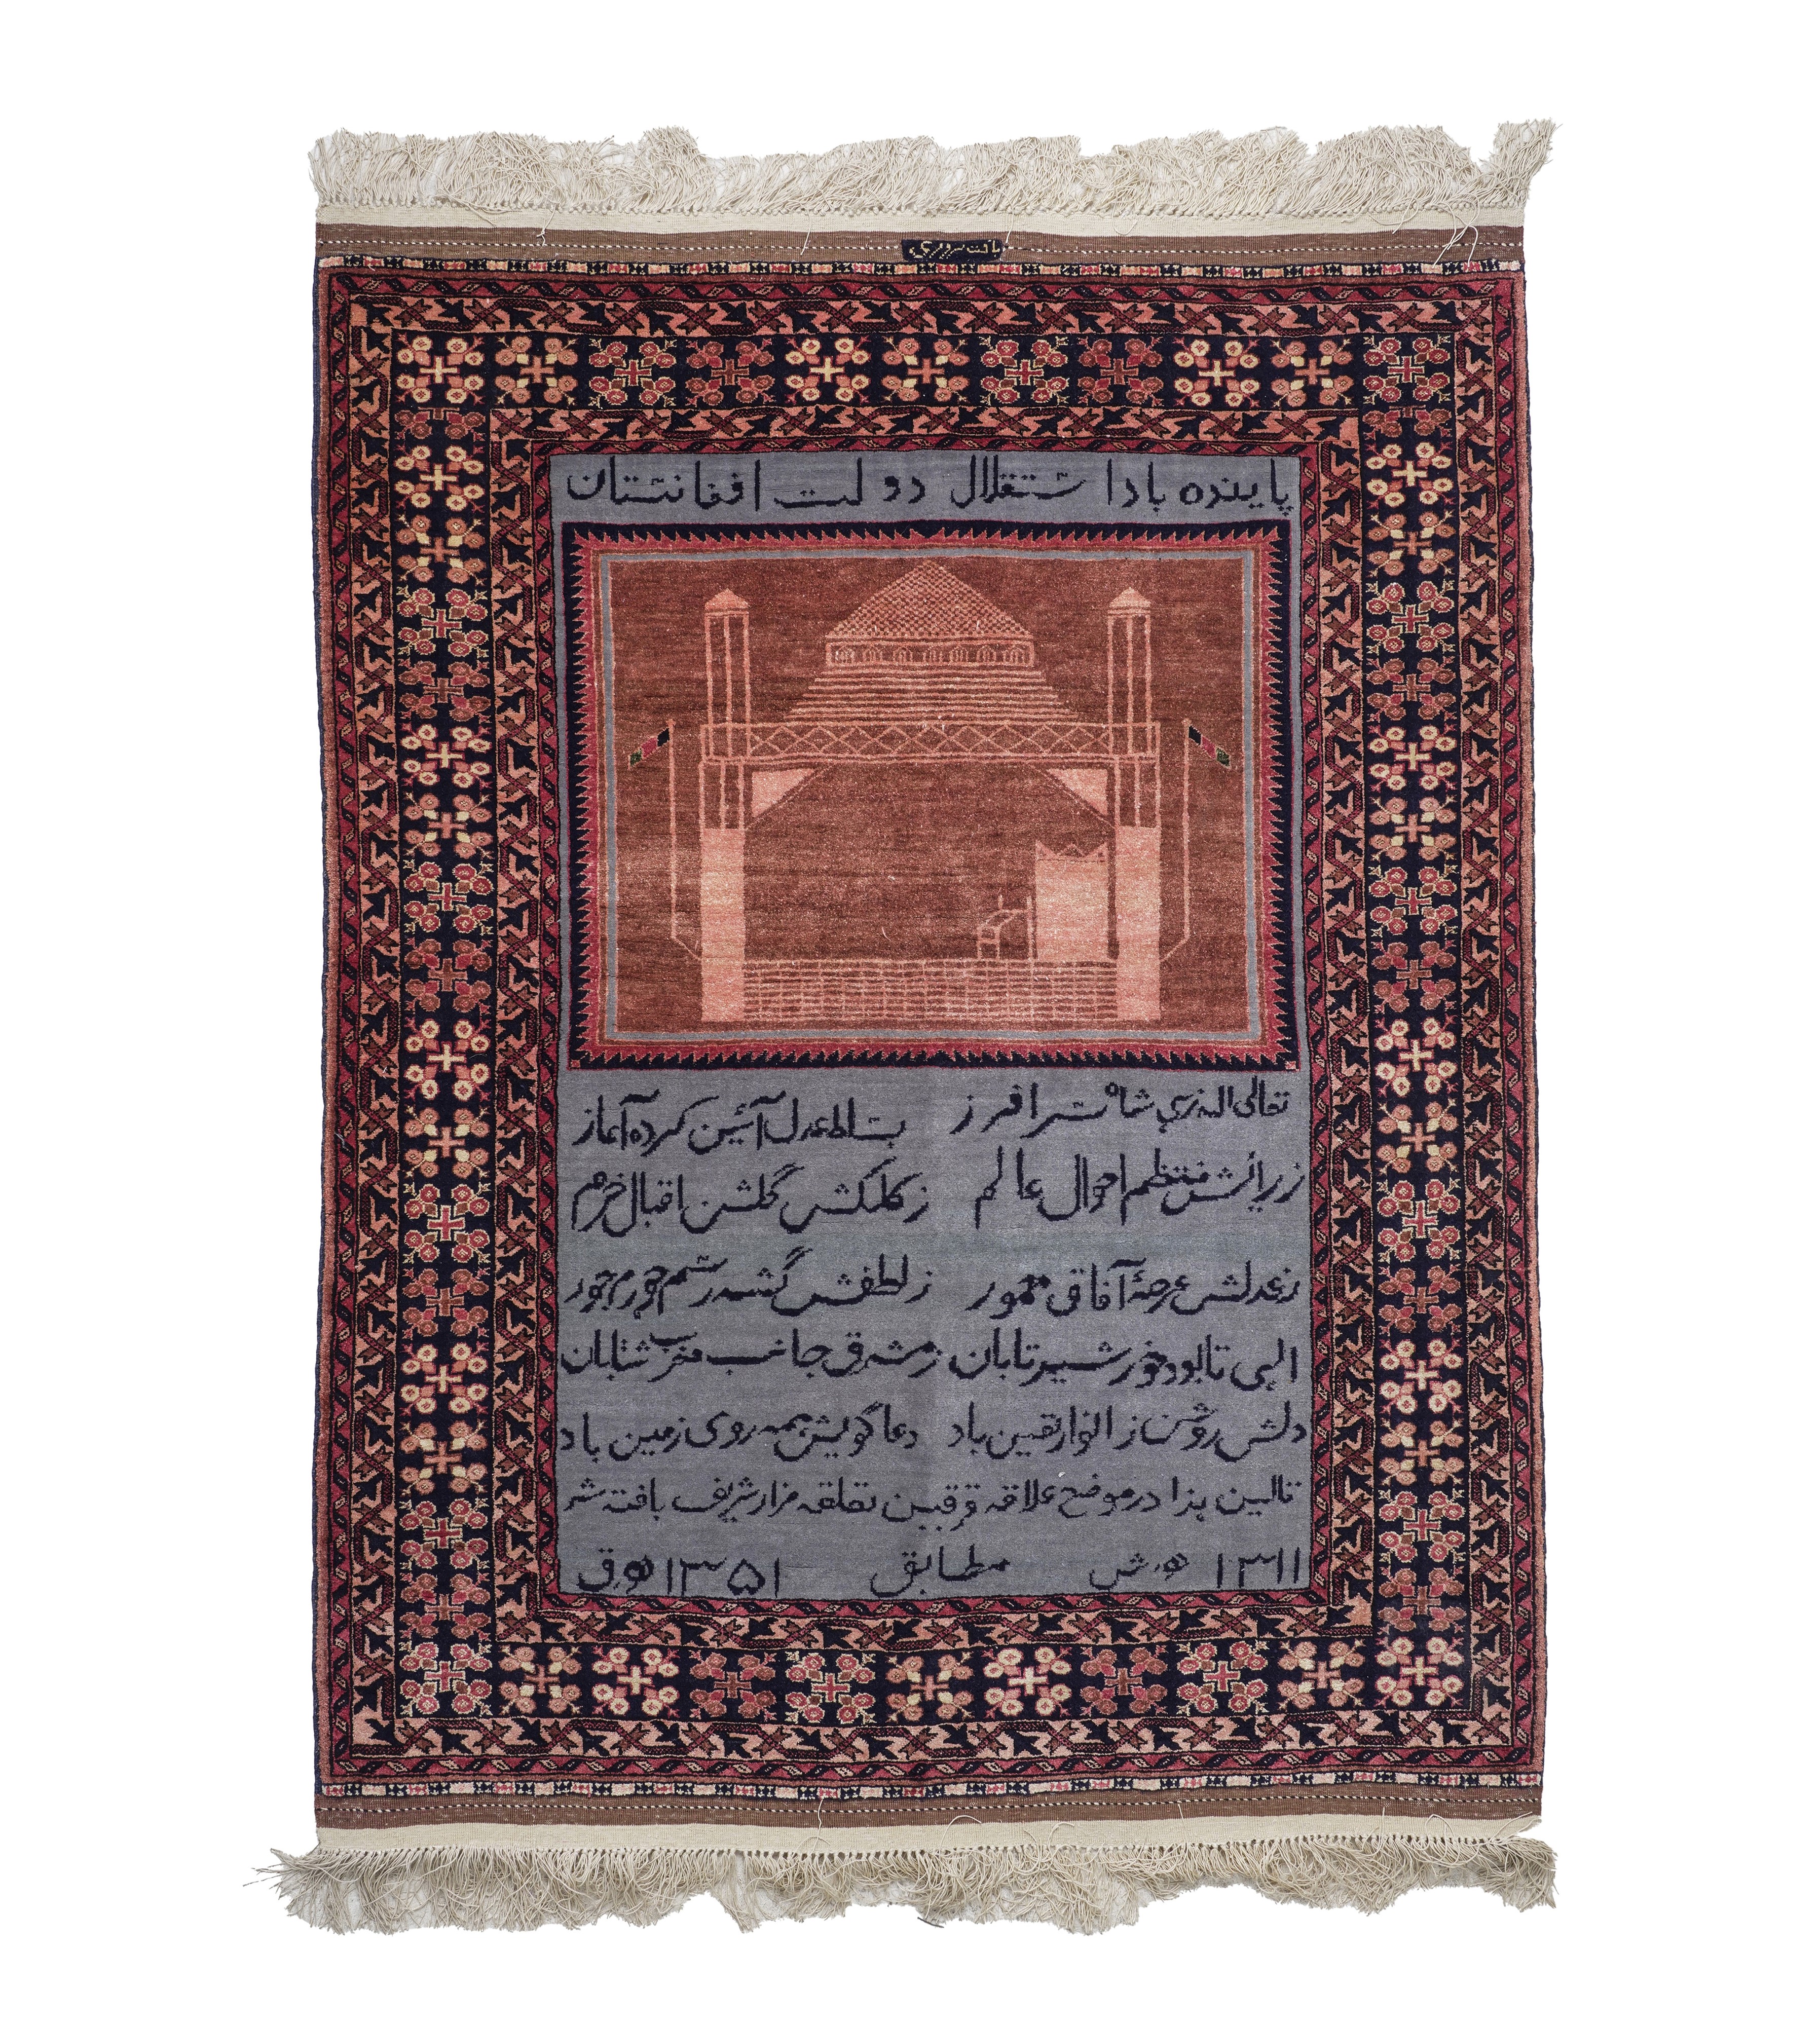 پاینده باد استقلال دولت افغانستان
تعالی الله زهی شاه سرافرز بساط عدل آئین کرده آغاز
زرائش منتظم احوال عالم ز کلکش گلشن اقبال خرم
زعدلش عرصۀ آفاق معمور ز لطفش گشته رسم جور مهجور
الهی تا بود خورشید تابان ز مشرق جانب مغرب شتابان
دلش روشن ز انوار یقین باد دعا گویش همه روی زمین باد
قالین هذا در موضع علاقه قرقین تعلقه مزار شریف بافته شد
۱۳۱۱ ه ش مطابق ۱۳۵۱ ه ق